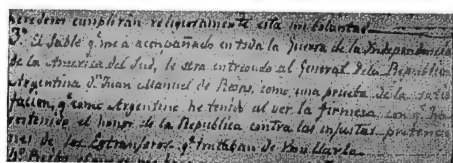 herederos cumplirán religiosamente esta mi Voluntad
3º El Sable qe me a acompañado en toda la Guerra de la Independencia
de la America del Sud, le será entregado al General de la Republica
Argentina Dn Juan Manuel de Rosas, como una prueba de la satis
faccion, q como Argentino he tenido al ver la firmeza con qe há
sostenido el honor de la Republica contra las injustas pretencio
nes de los Estranjeros qe trataban de Umillarla.